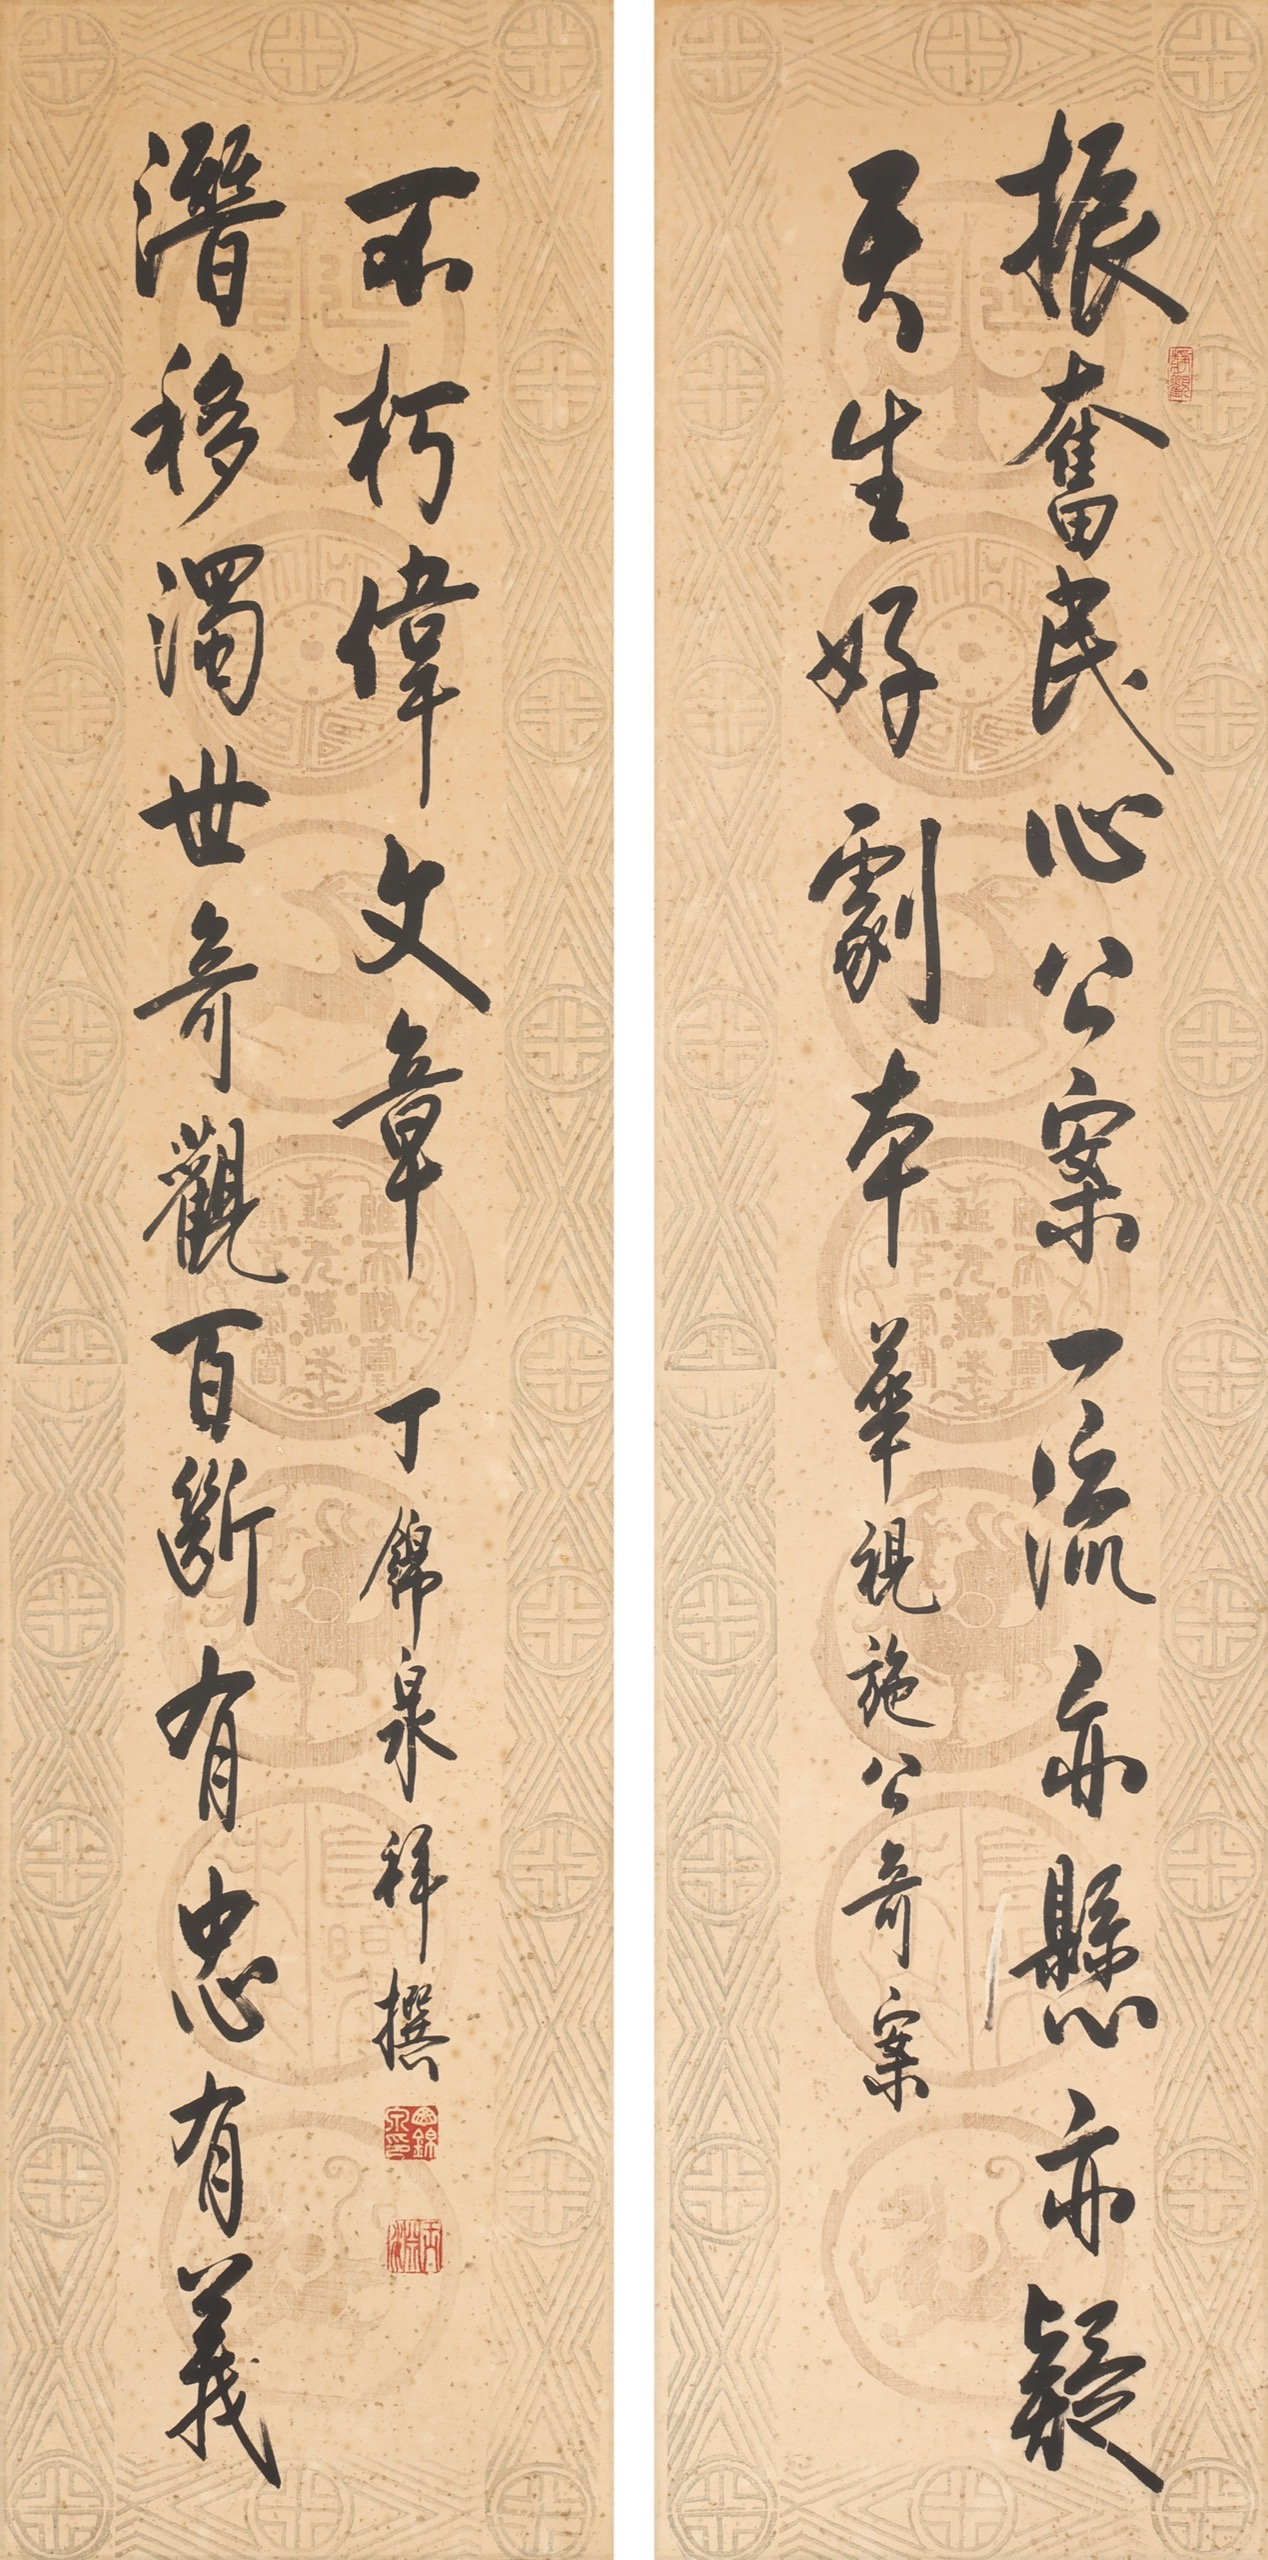 振奮民心公案一流亦懸亦疑
天生好劇本 華視施公奇案
潛移濁世奇觀百斷有忠有義
不朽偉文章 丁錦泉拜撰